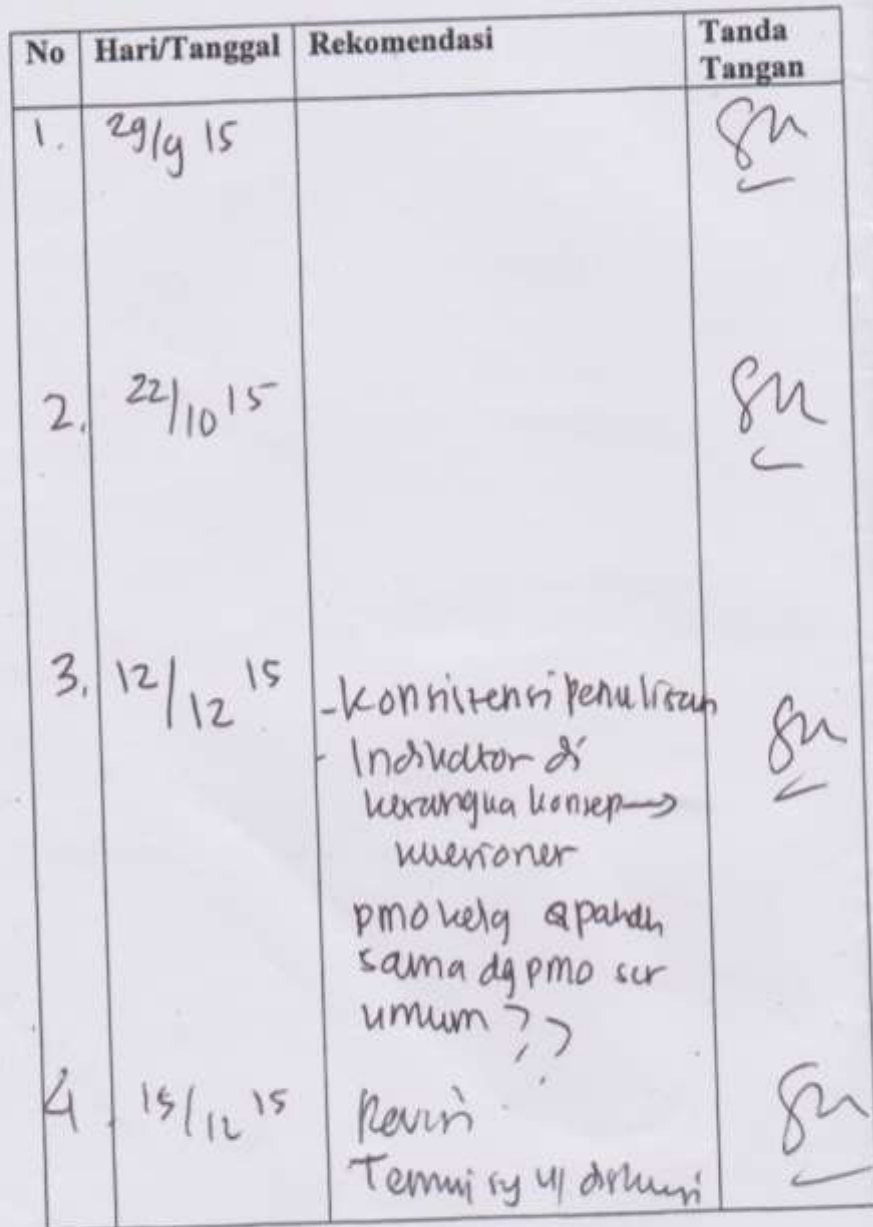 No Hari/Tanggal Rekomendasi Tanda Tangan
1. 29/9 15
2. 22/10 15
3. 12/12 15 - Konsistensi penulisan
- Indikator di
kerangka konsep →
kuesioner
pmo kelg apakah
sama dg pmo scr
umum ??
4. 15/12 15 Revisi
Temui sy u/ diskusi